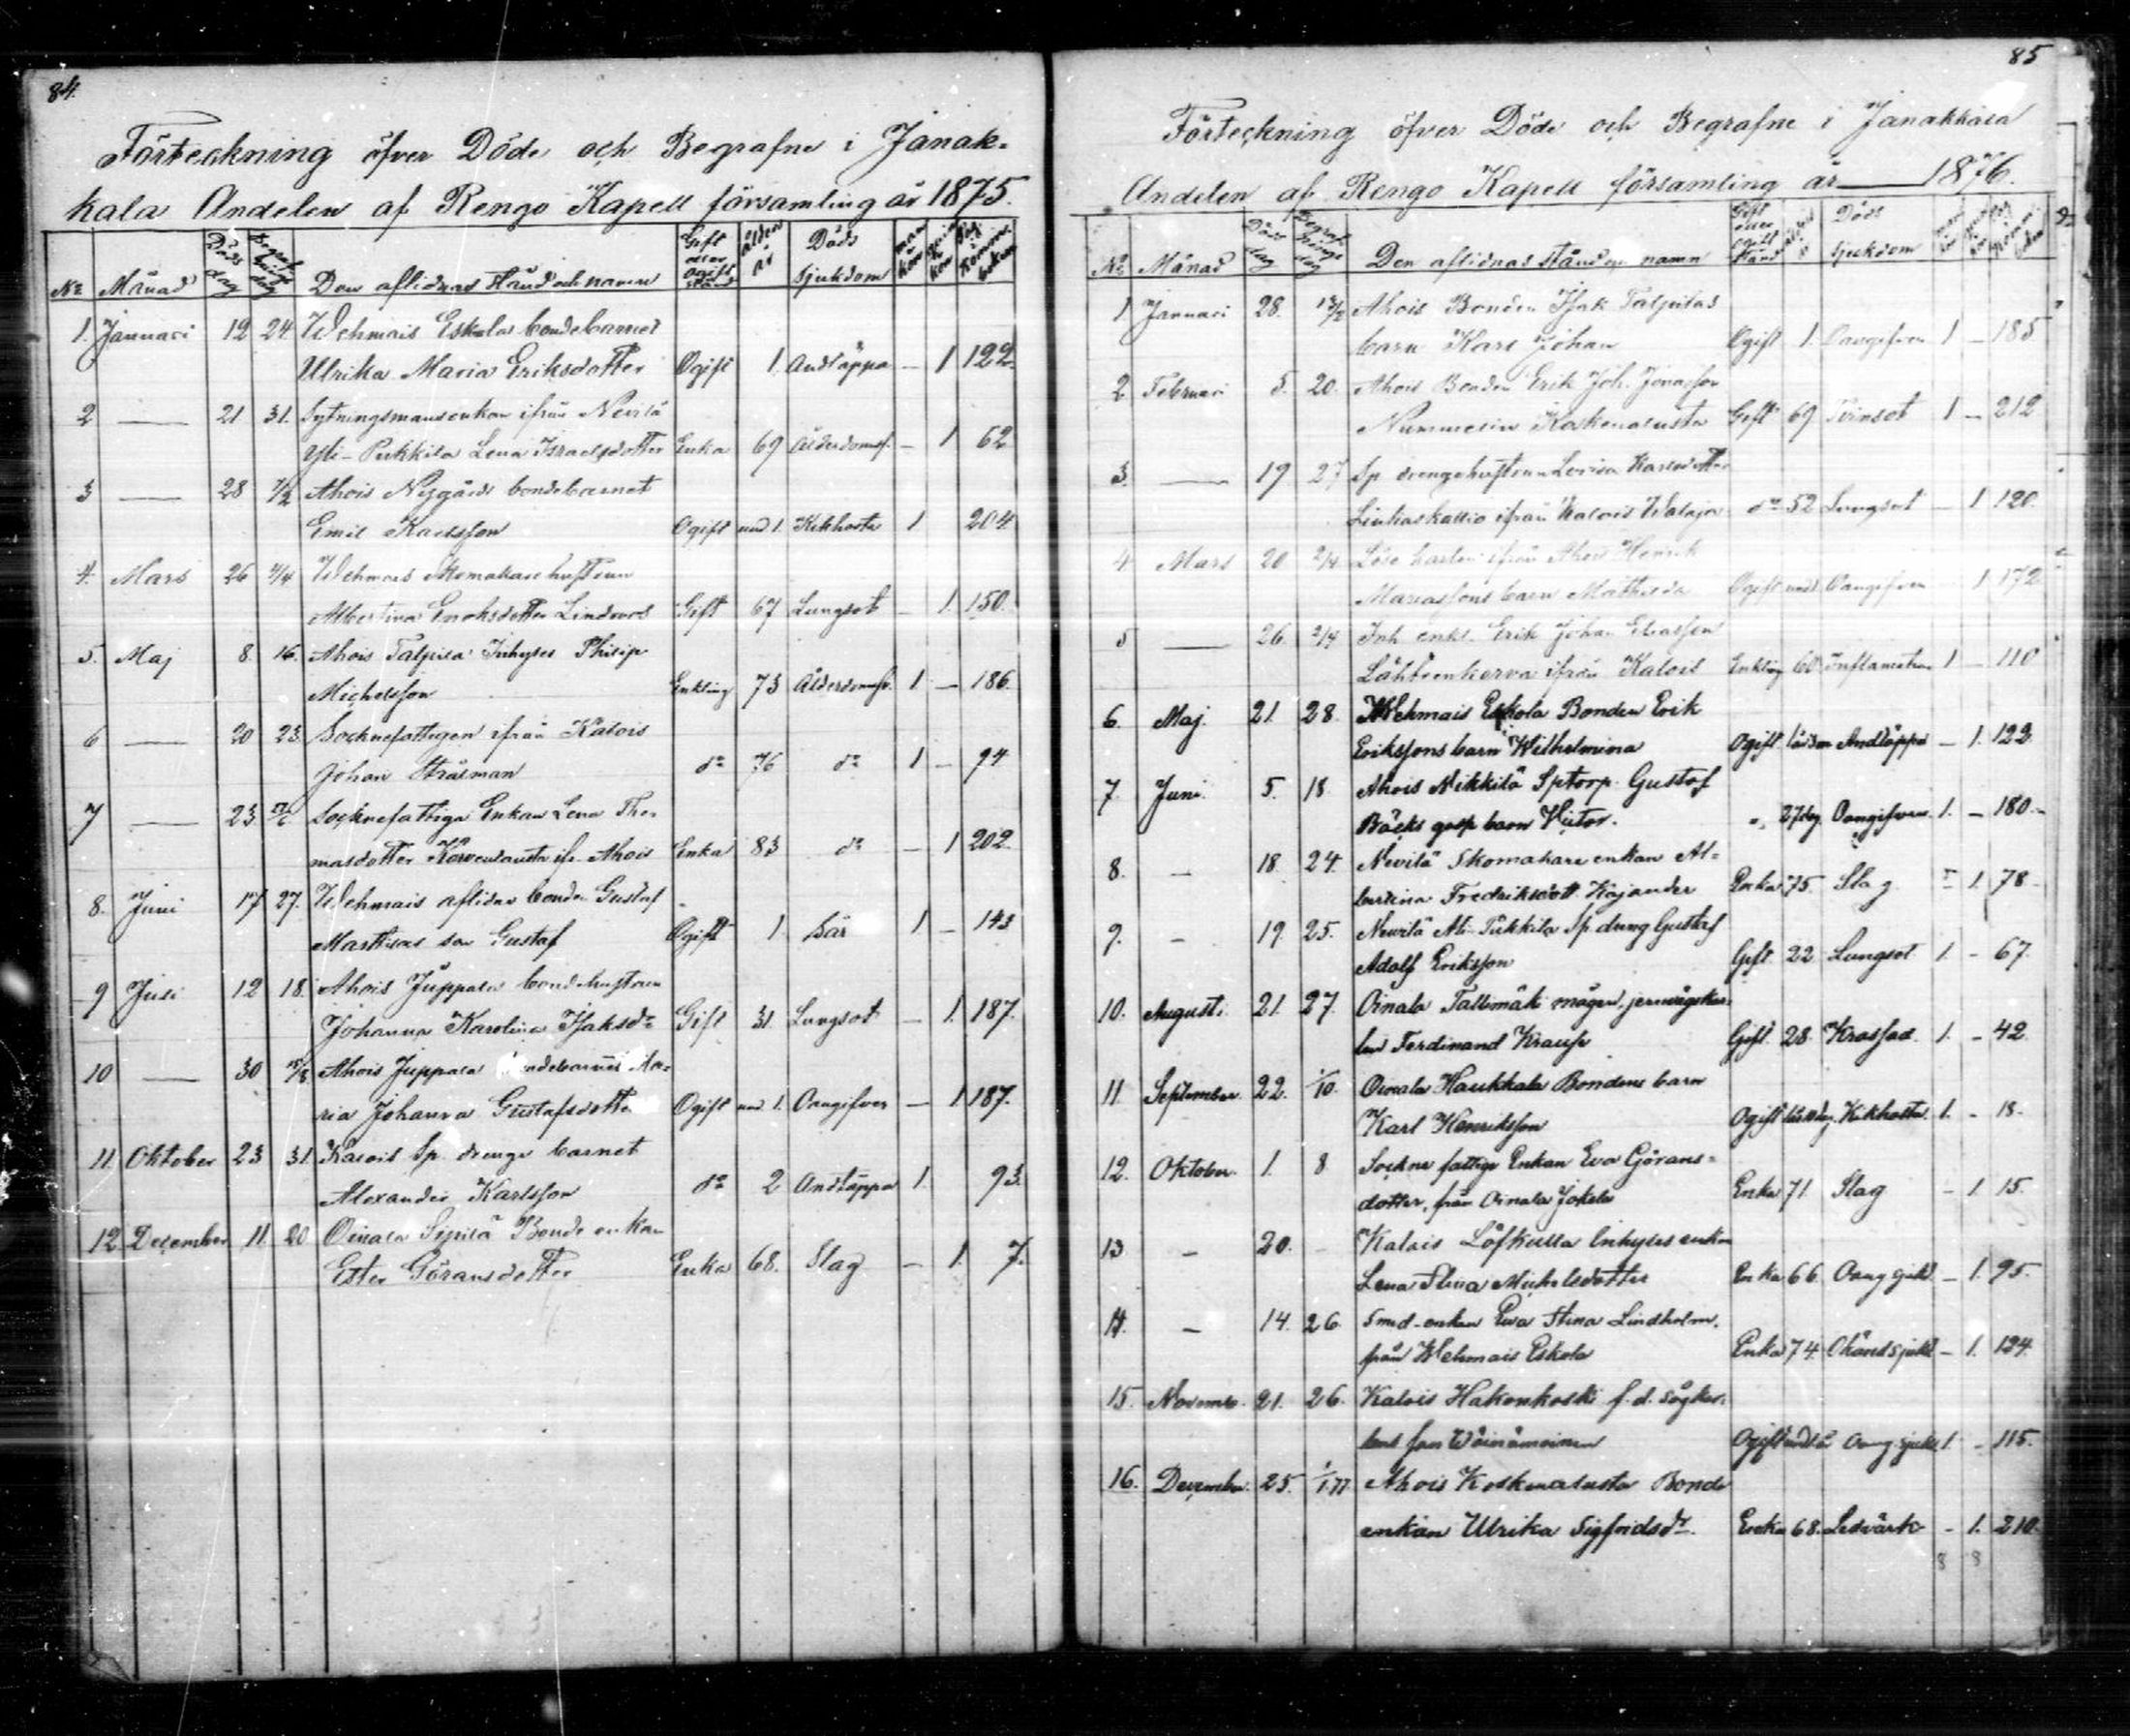 84.
Förteckning öfver Döde och Begrafne i Janak-
kala Andelen af Rengo Kapell församling år 1875.
No Månad Döds dag Begraf- nings dag Den aflidnas Stånd och namn Gift eller Ogift stånd Ålder år Döds sjukdom man kön qvin kön Sid. i Komm. boken
1. Januari 12 24 Wehmais Eskola bondebarnet
Ulrika Maria Eriksdotter Ogift 1 Andtäppa — 1 122
2 — 21 31. Sytningsmansenkan ifrån Nevilä
Yli-Pukkila Lena Israelsdotter Enka 69 Ålderdomsf. — 1 62
3 — 28 7/2 Ahois Nygårds bondebarnet
Emil Karlsson Ogift und 1. Kikhosta 1 204
4. Mars 26 4/4 Wehmais hustrun
Albertina Enoksdotter Gift 67 Lungsot — 1. 150.
5. Maj 8. 16. Ahois Talpila Inhyses Philip
Michelsson Enkling 73 Ålderdomsf. 1 — 186.
6 — 20 23. Socknefattigen ifrån Kalois
Johan Stråsman do 76 do 1 — 94
7 — 23 Socknefattiga Enkan Lena Tho-
masdotter ifr. Ahois Enka 83 do — 1 202.
8. Juni 17 27. Wehmais aflidne bonden Gustaf
Marttilas son Gustaf Ogift 1. Sår 1 — 143
9 Juli 12 18. Ahois Juppala bondehustrun
Johanna Karolina Isaksdr Gift 31. Lungsot — 1. 187.
10 — 30 Ahois Juppala bondebarnet Ma-
ria Johanna Gustafsdotter Ogift und 1. Oangifven — 1 187.
11. Oktober 23 31. Kalois Sp. drenge barnet
Alexander Karlsson do 2 Andtäppa 1. 93.
12. December 11 20 Oinala Sipilä Bonde enkan
Ester Göransdotter Enka 68. Slag — 1. 7.
85
Förteckning öfver Döde och Begrafne i Janakkala
Andelen af Rengo Kapell församling år — 1876.
No Månad Döds dag Begraf- nings dag Den aflidnas stånd och namn Gift eller Ogift stånd Döds sjukdom
1 Januari 28. 13/2 Ahois Bonden Isak Talpilas
barn Karl Johan Ogift 1. Oangifven 1 — 185
2 Februari 5. 20. Ahois Bonden Erik Joh. Jonasson
Nummelin Koskenalusta Gift 69 Tvinsot 1 — 212
3. — 19. 27 Sp drengehustrun Lovisa Karlsdotter
Liukaskallio ifrån Kalois do 52 Lungsot — 1 120.
4 Mars 20 2/4. Löse karlen ifrån Ahois Henrik
barn Mathilda Ogift und 1. Oangifven 1 172
5 — 26. 2/4 Inh. enkl. Erik Johan Eliasson
ifrån Kalois Enkling 60 Inflamation 1 — 110
6. Maj. 21. 28. Wehmais Eskola Bonden Erik
Erikssons barn Wilhelmina Ogift Andtäppa — 1. 122
7. Juni. 5. 18. Ahois Nikkilä Sptorp. Gustaf
Bäcks barn Victor. „ 27 dag. Oangifven. 1. — 180.
8. — 18. 24. Nevilä Skomakare enkan Al-
bertina Fredriksdott. Kajander Enka 75. Slag — 1. 78.
9. — 19. 25. Nevilä Ali-Pukkila Sp. dreng Gustaf
Adolf Eriksson Gift 22. Lungsot 1. — 67.
10. August. 21. 27. Oinala Tallimäki mågen, jernvägskar-
len Ferdinand Krause Gift. 28. Krossad. 1. — 42.
11. September. 22. 1/10. Oinala Haukkala Bondens barn
Karl Henriksson Ogift Kikhosta. 1. — 18.
12. Oktober. 1. 8 Sockne fattige Enkan Eva Görans-
dotter, från Oinala Jokela Enka 71. Slag — 1 15.
13 — 20. — Kalois Löfkulla Inhyses enkan
Lena Stina Michelsdotter Enka 66. Oang sjukd. — 1. 95.
14. — 14. 26. Smed-enkan Eva Stina Lindholm.
från Wehmais Eskola Enka 74. Okänd sjukd — 1. 124.
15. Novemb. 21. 26. Kalois Hakonkoski f.d. sågkar-
lens son Wäinämöinen Ogift Oang sjukd 1 — 115.
16. December. 25. 1/1.77 Ahois Koskenalusta Bonde
enkan Ulrika Sigfridsdr. Enka 68. Ledvärk — 1. 210.
8 8